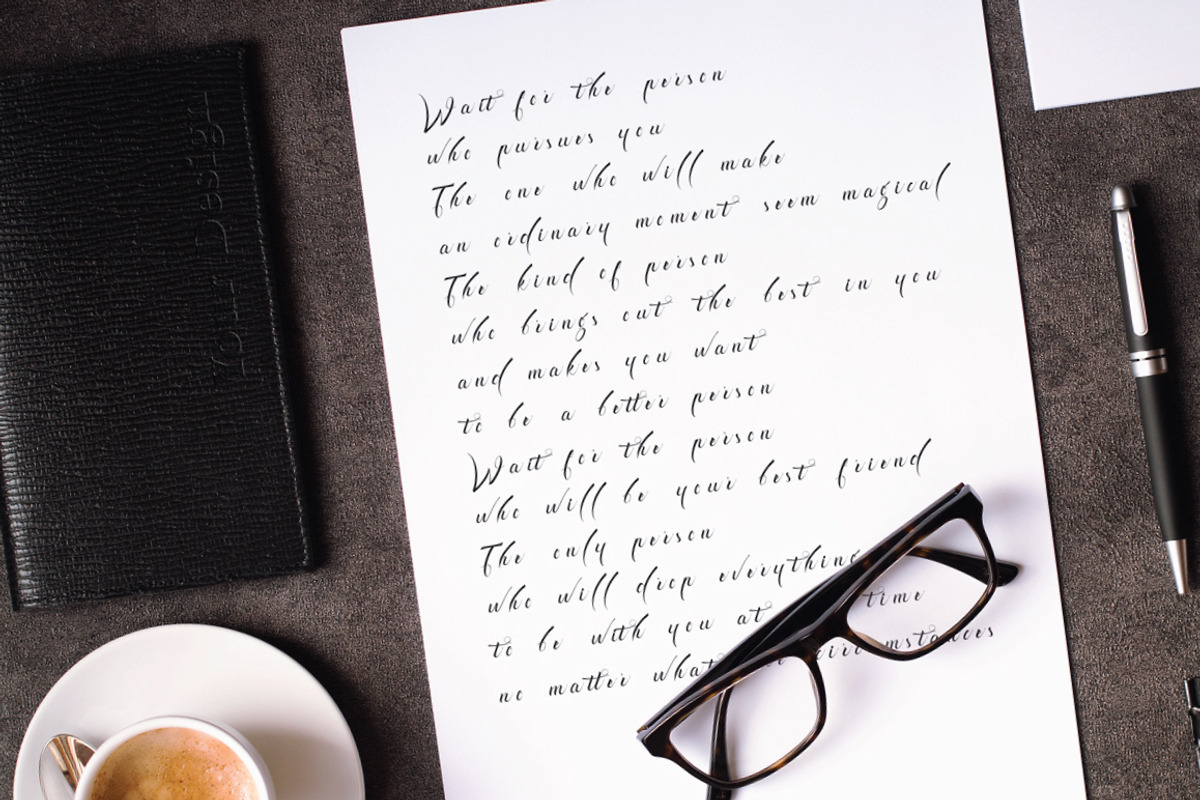 Wait for the person
who pursues you
The one who will make
an ordinary moment seem magical
The kind of person
who brings out the best in you
and makes you want
to be a better person
Wait for the person
who will be your best friend
The only person
who will drop everything
to be with you at time
no matter what circumstances
Your Design